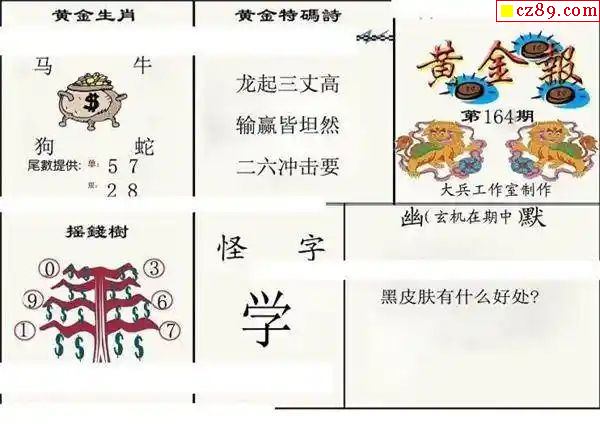 cz89.com
黄金生肖
马 牛
$
狗 蛇
尾數提供: 单: 5 7
双: 2 8
黄金特碼詩
龙起三丈高
输赢皆坦然
二六冲击要
黄金報
第164期
大兵工作室制作
摇錢樹
0 3
9 6
1 7
$ $ $ $ $ $
怪 字
学
幽(玄机在期中)默
黑皮肤有什么好处?